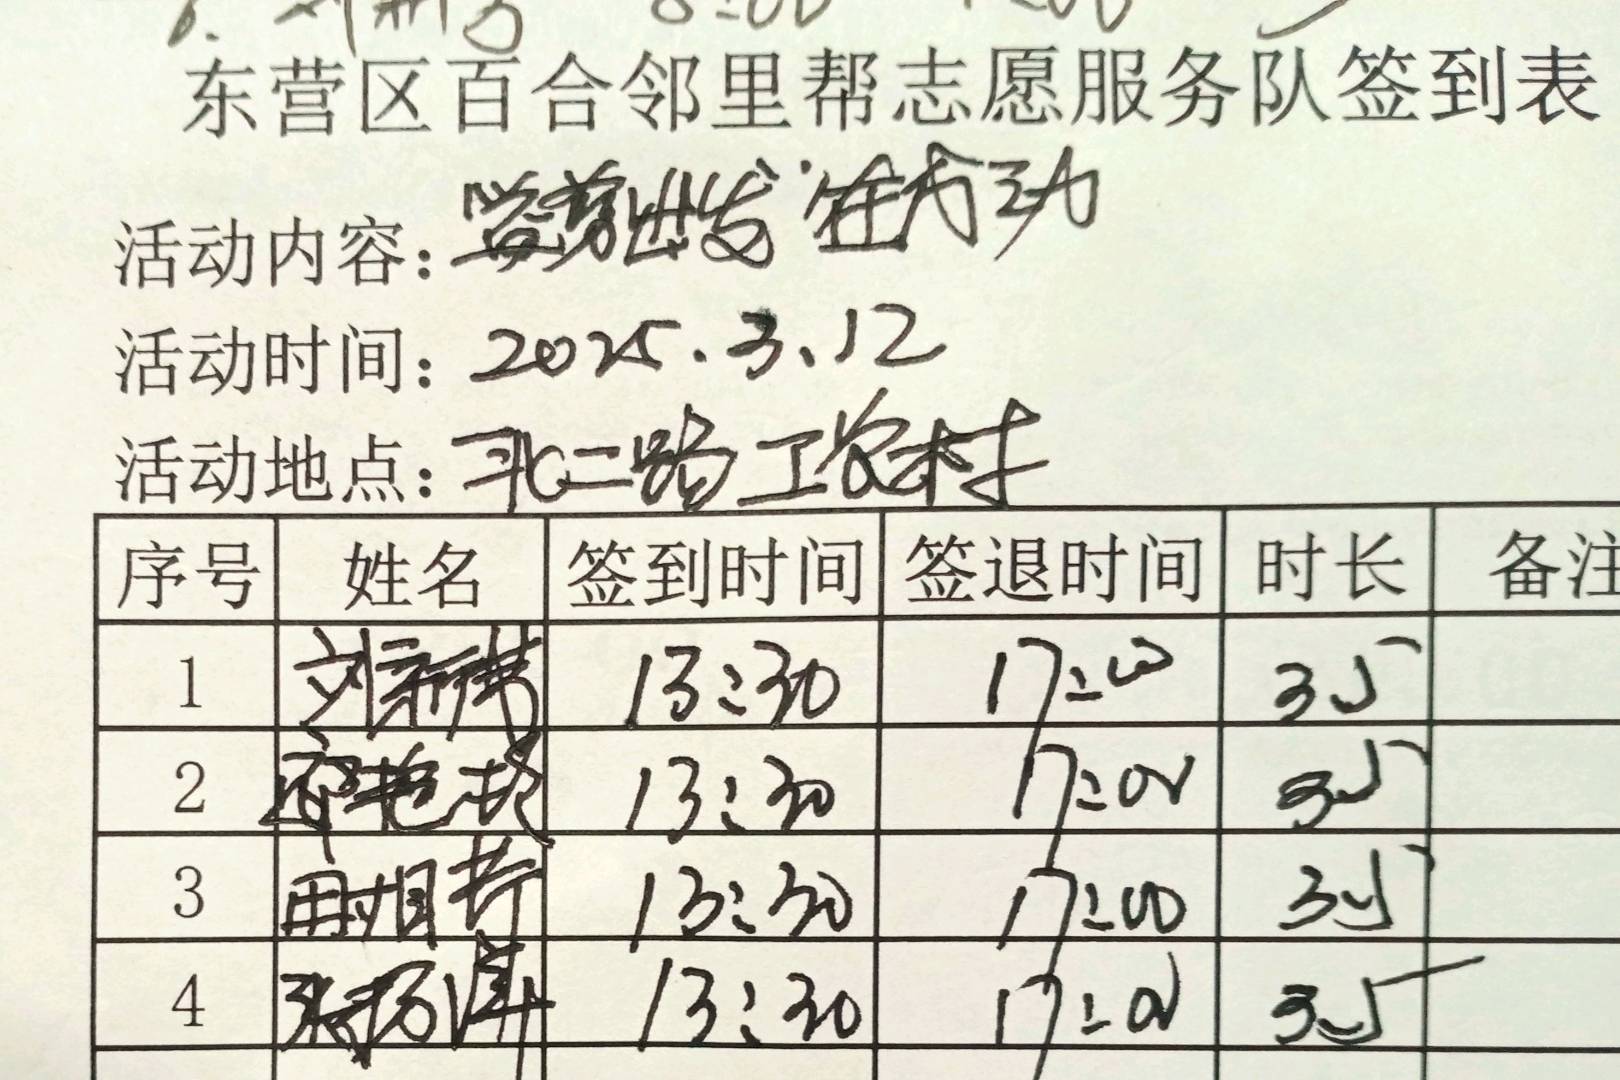 8:00
东营区百合邻里帮志愿服务队签到表
活动内容：益剪出发 在行动
活动时间：2025.3.12
活动地点：北二路工农村
序号 姓名 签到时间 签退时间 时长 备注
1 13:30 17:00 3.5
2 13:30 17:00 3.5
3 13:30 17:00 3.5
4 13:30 17:00 3.5